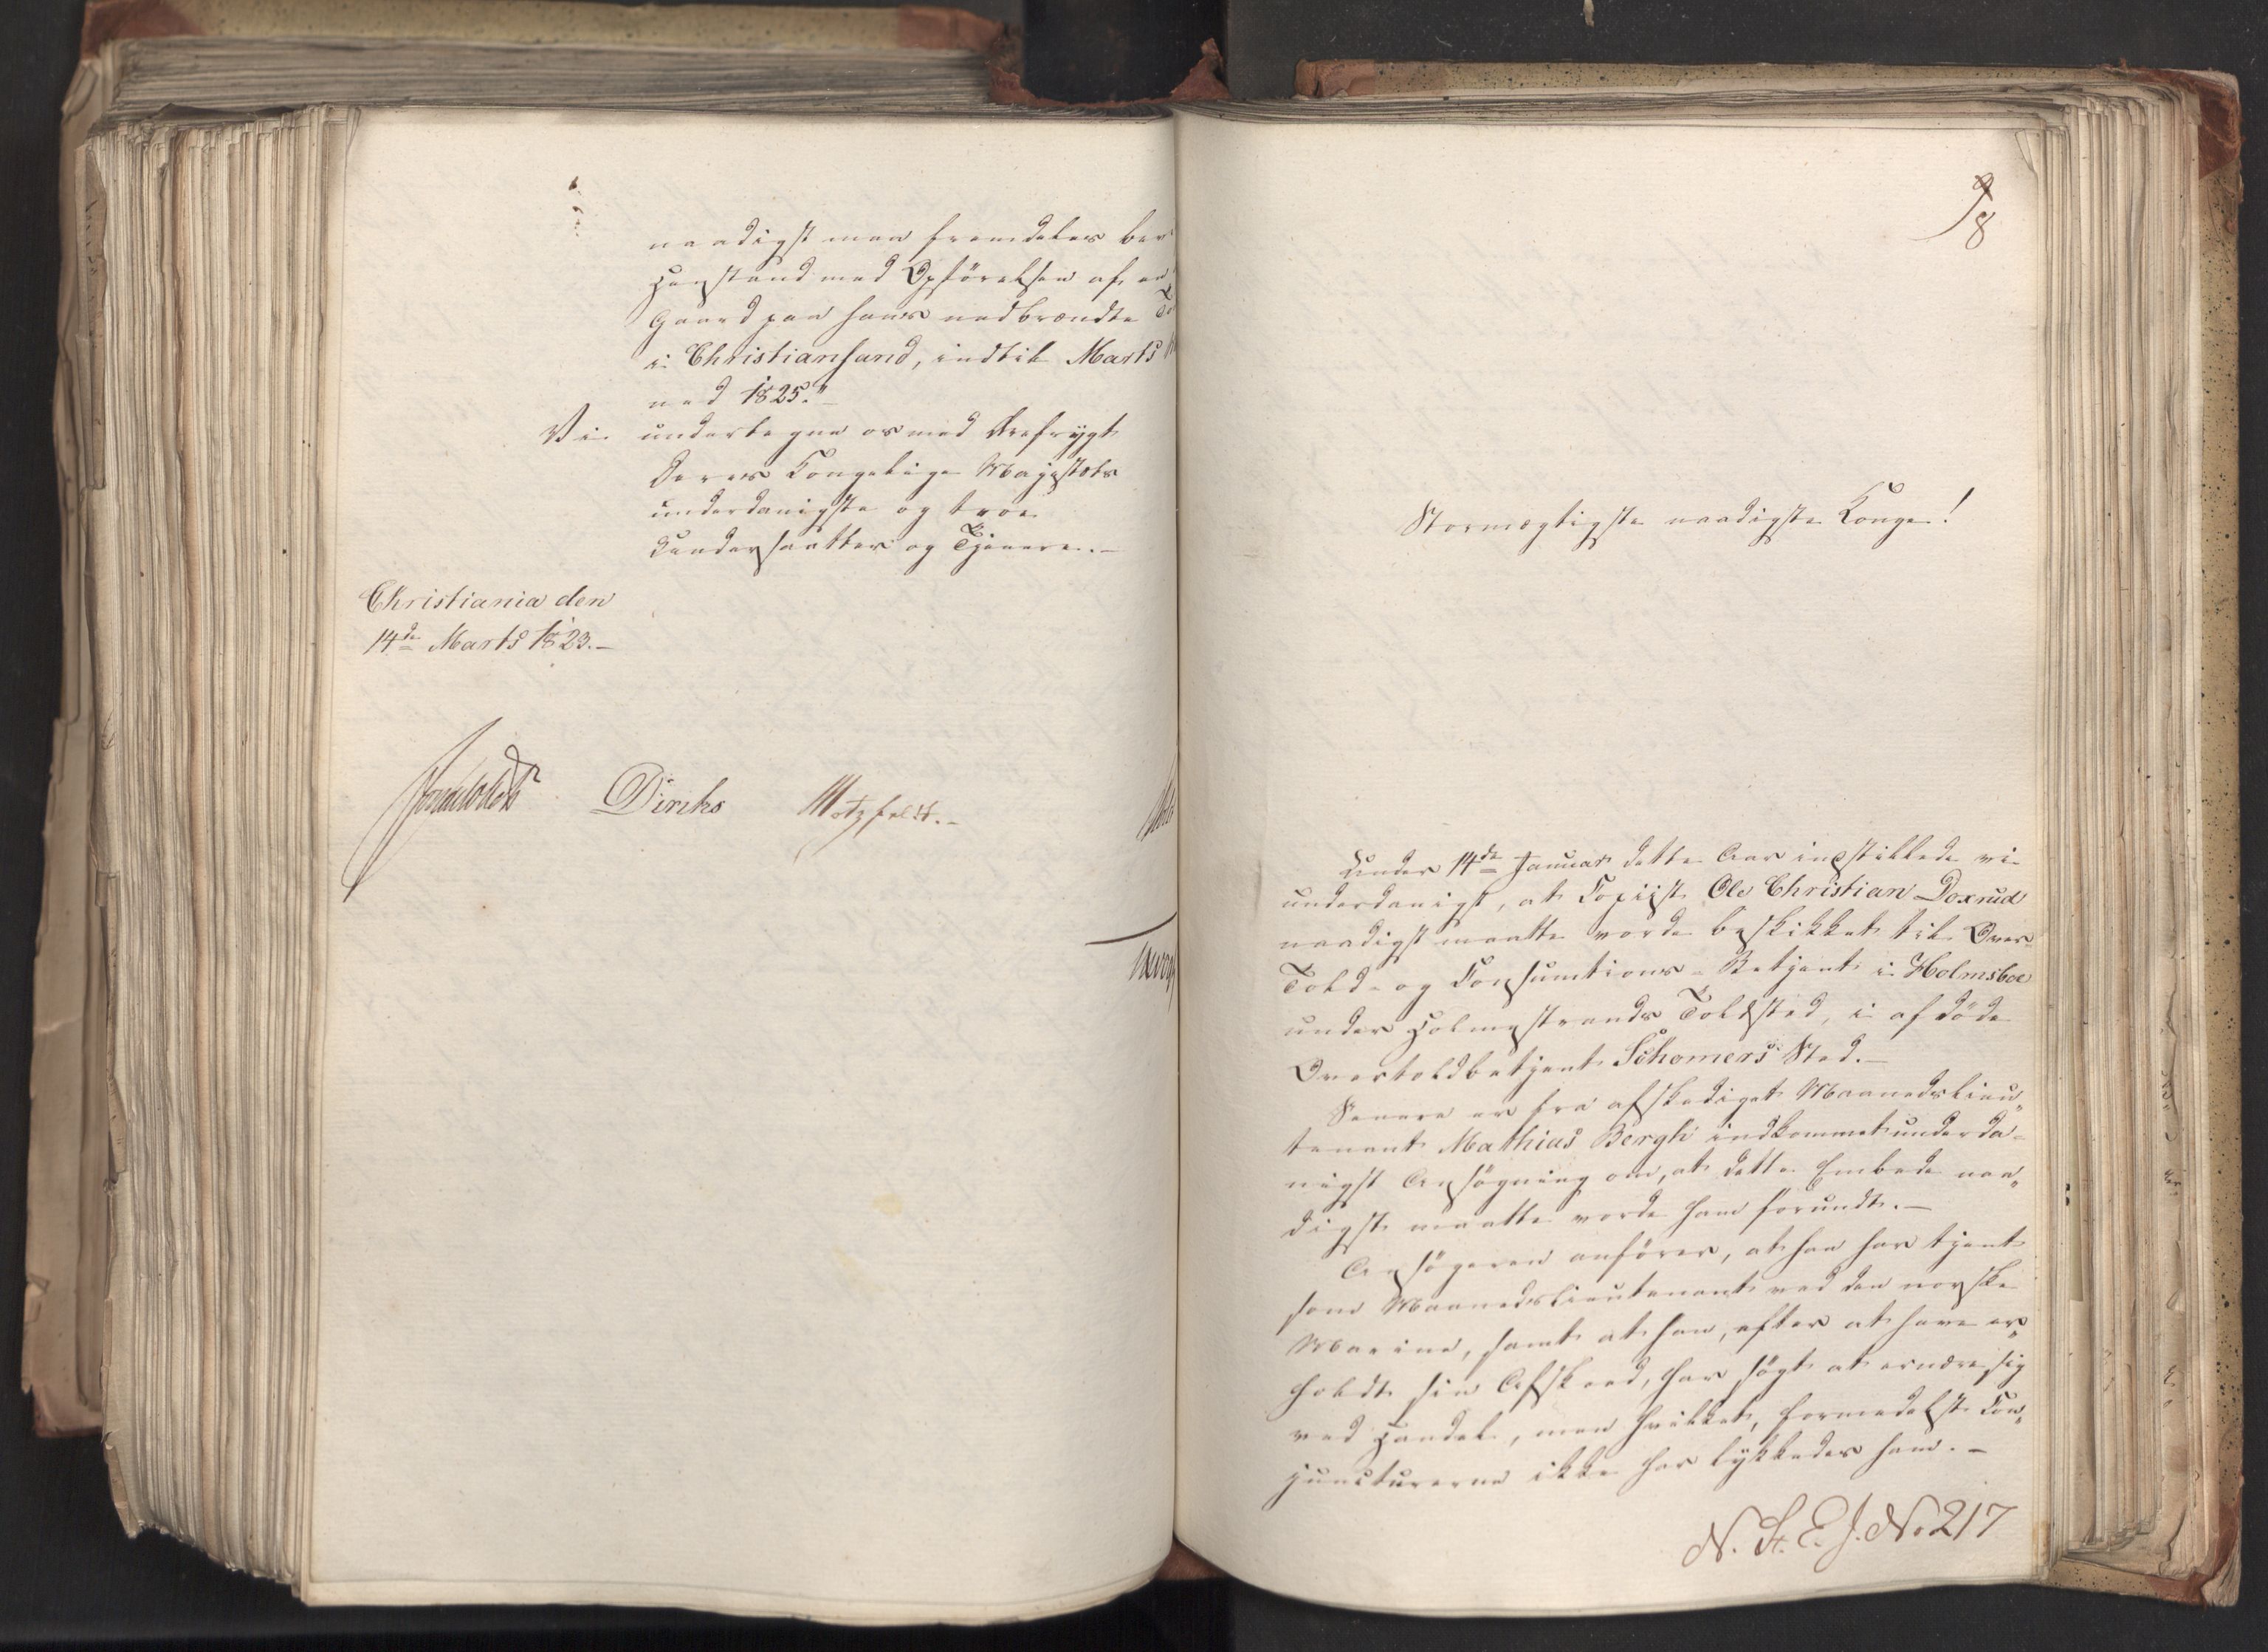 naadigst maa fremdeles ber
Henstand med Opførelsen af en
Gaard paa hans nedbrændte To
i Christiansund, indtil Marts
ned 1825."
Vi undertegne os med Ærefrygt
Deres Kongelige Majestæts
underdanigste og troe
Undersaatter og Tjenere.-
Christiania den
14de Marts 1823.-
Diriks Motzfeldt.-
8
Stormægtigste naadigste Konge!
Under 14de Januar dette Aar indstillede vi
underdanigst, at Copiist Ole Christian Doxrud
naadigst maatte vorde beskikket til Over-
Told- og Consumtions-Betjent i Holmsboe
under Holmestrands Toldsted, i afdøde
Overtoldbetjent Schomers Sted.-
Senere er fra afskediget Maanedslieu„
tenant Mathias Bergh indkommet underda-
nigst Ansøgning om, at dette Embede naa„
digst maatte vorde ham forundt.-
Ansøgeren anfører, at han har tjent
som Maanedslieutenant ved den norske
Marine, samt at han, efter at have er„
holdt sin Afskeed, har søgt at ernære sig
ved Handel, men hvilket, formedelst Con„
juncturerne ikke har lykkedes ham.-
N. St. E. J. No 217